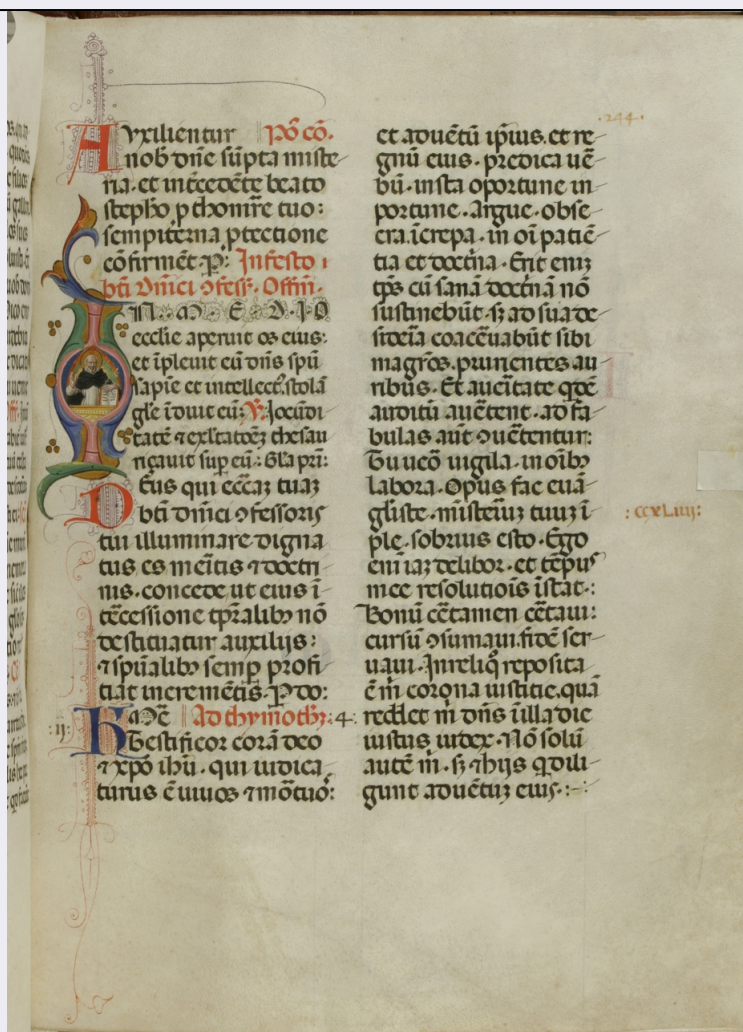 .244.
Auxilientur Pō cō.
nob dn̄e sūpta miste
ria. et int̄cedēte beato
stepho p thomr̄e tuo:
sempiterna ꝓtectione
cōfirmēt. P: In festo
bt̄i Dn̄ici ꝯfess. Offm̄.
IN. M. E. D. I. O
ecclie aperuit os eius:
et īpleuit eū dn̄s spū
sapie et intellect. stolā
gle īduit eū: V. Jocūdi
tatē ⁊ exltatōeȝ thesau
riçauit sup eū: Gla pr̄i:
Deus qui ecc̄aȝ tuaȝ
bt̄i dn̄ici ꝯfessoris
tui illuminare digna
tus es mēitis ⁊ doctri
nis. concede ut eius ī
t̄cessione tpr̄alibꝫ nō
destituatur auxilijs:
⁊ spūalibꝫ semp profi
tiat incremētis. P do:
Ka Me Ad thymoth: 4.
:ij: Testificor corā deo
⁊ xpō ihū. qui iudica
turus ē uiuos ⁊ mōtuos:
et aduētū ip̄ius. et re
gnū eius. predica uē
bū. insta oportune in
portune. Argue. obse
cra. īcrepa. in oī patiē
tia et doct̄na. Erit eniȝ
tp̄s cū sanā doct̄nā nō
sustinebūt. sȝ ad sua de
sideīa coaceuabūt sibi
magr̄os. prurientes au
ribus. Et aueītate qdē
auditū auētent. ad fa
bulas aūt ꝯuētentur:
Tu uēo uigila. in oībꝫ
labora. Opus fac euā
gliste. mīsteīuȝ tuuȝ ī
ple. sobrius esto. Ego
eni iaȝ delibor. et tēpus
mee resolutiois īstat.:
:ccxliiij:
Bonū c̄etamen c̄etaui:
cursū ꝯsumaui. fidē ser
uaui. In reliqͦ reposita
ē m̄ corona iustitie. quā
reddet m̄ dn̄s ī illa die
iustus iudex. Nō solū
autē m̄. sȝ ⁊ hijs q dili
gunt aduētuȝ eius.: